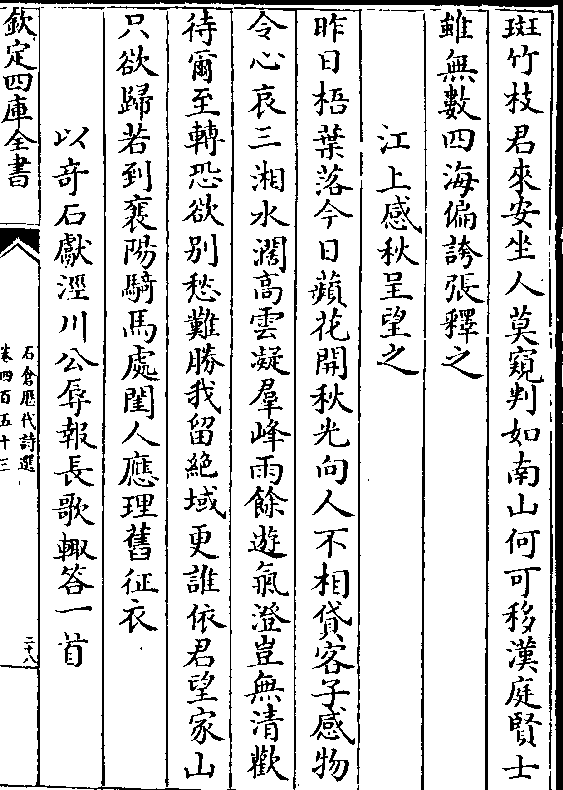 斑竹枝君來安坐人莫窺判如南山何可移漢庭賢士
雖無數四海偏誇張釋之
江上感秋呈望之
昨日梧葉落今日蘋花開秋光向人不相貸客子感物
令心哀三湘水濶高雲凝羣峰雨餘遊氣澄豈無清歡
待爾至轉恐欲別愁難勝我留絕域更誰依君望家山
只欲歸若到襄陽騎馬處閨人應理舊征衣
以奇石獻涇川公辱報長歌輙答一首
欽定四庫全書
石倉歷代詩選
卷四百五十三
二十八